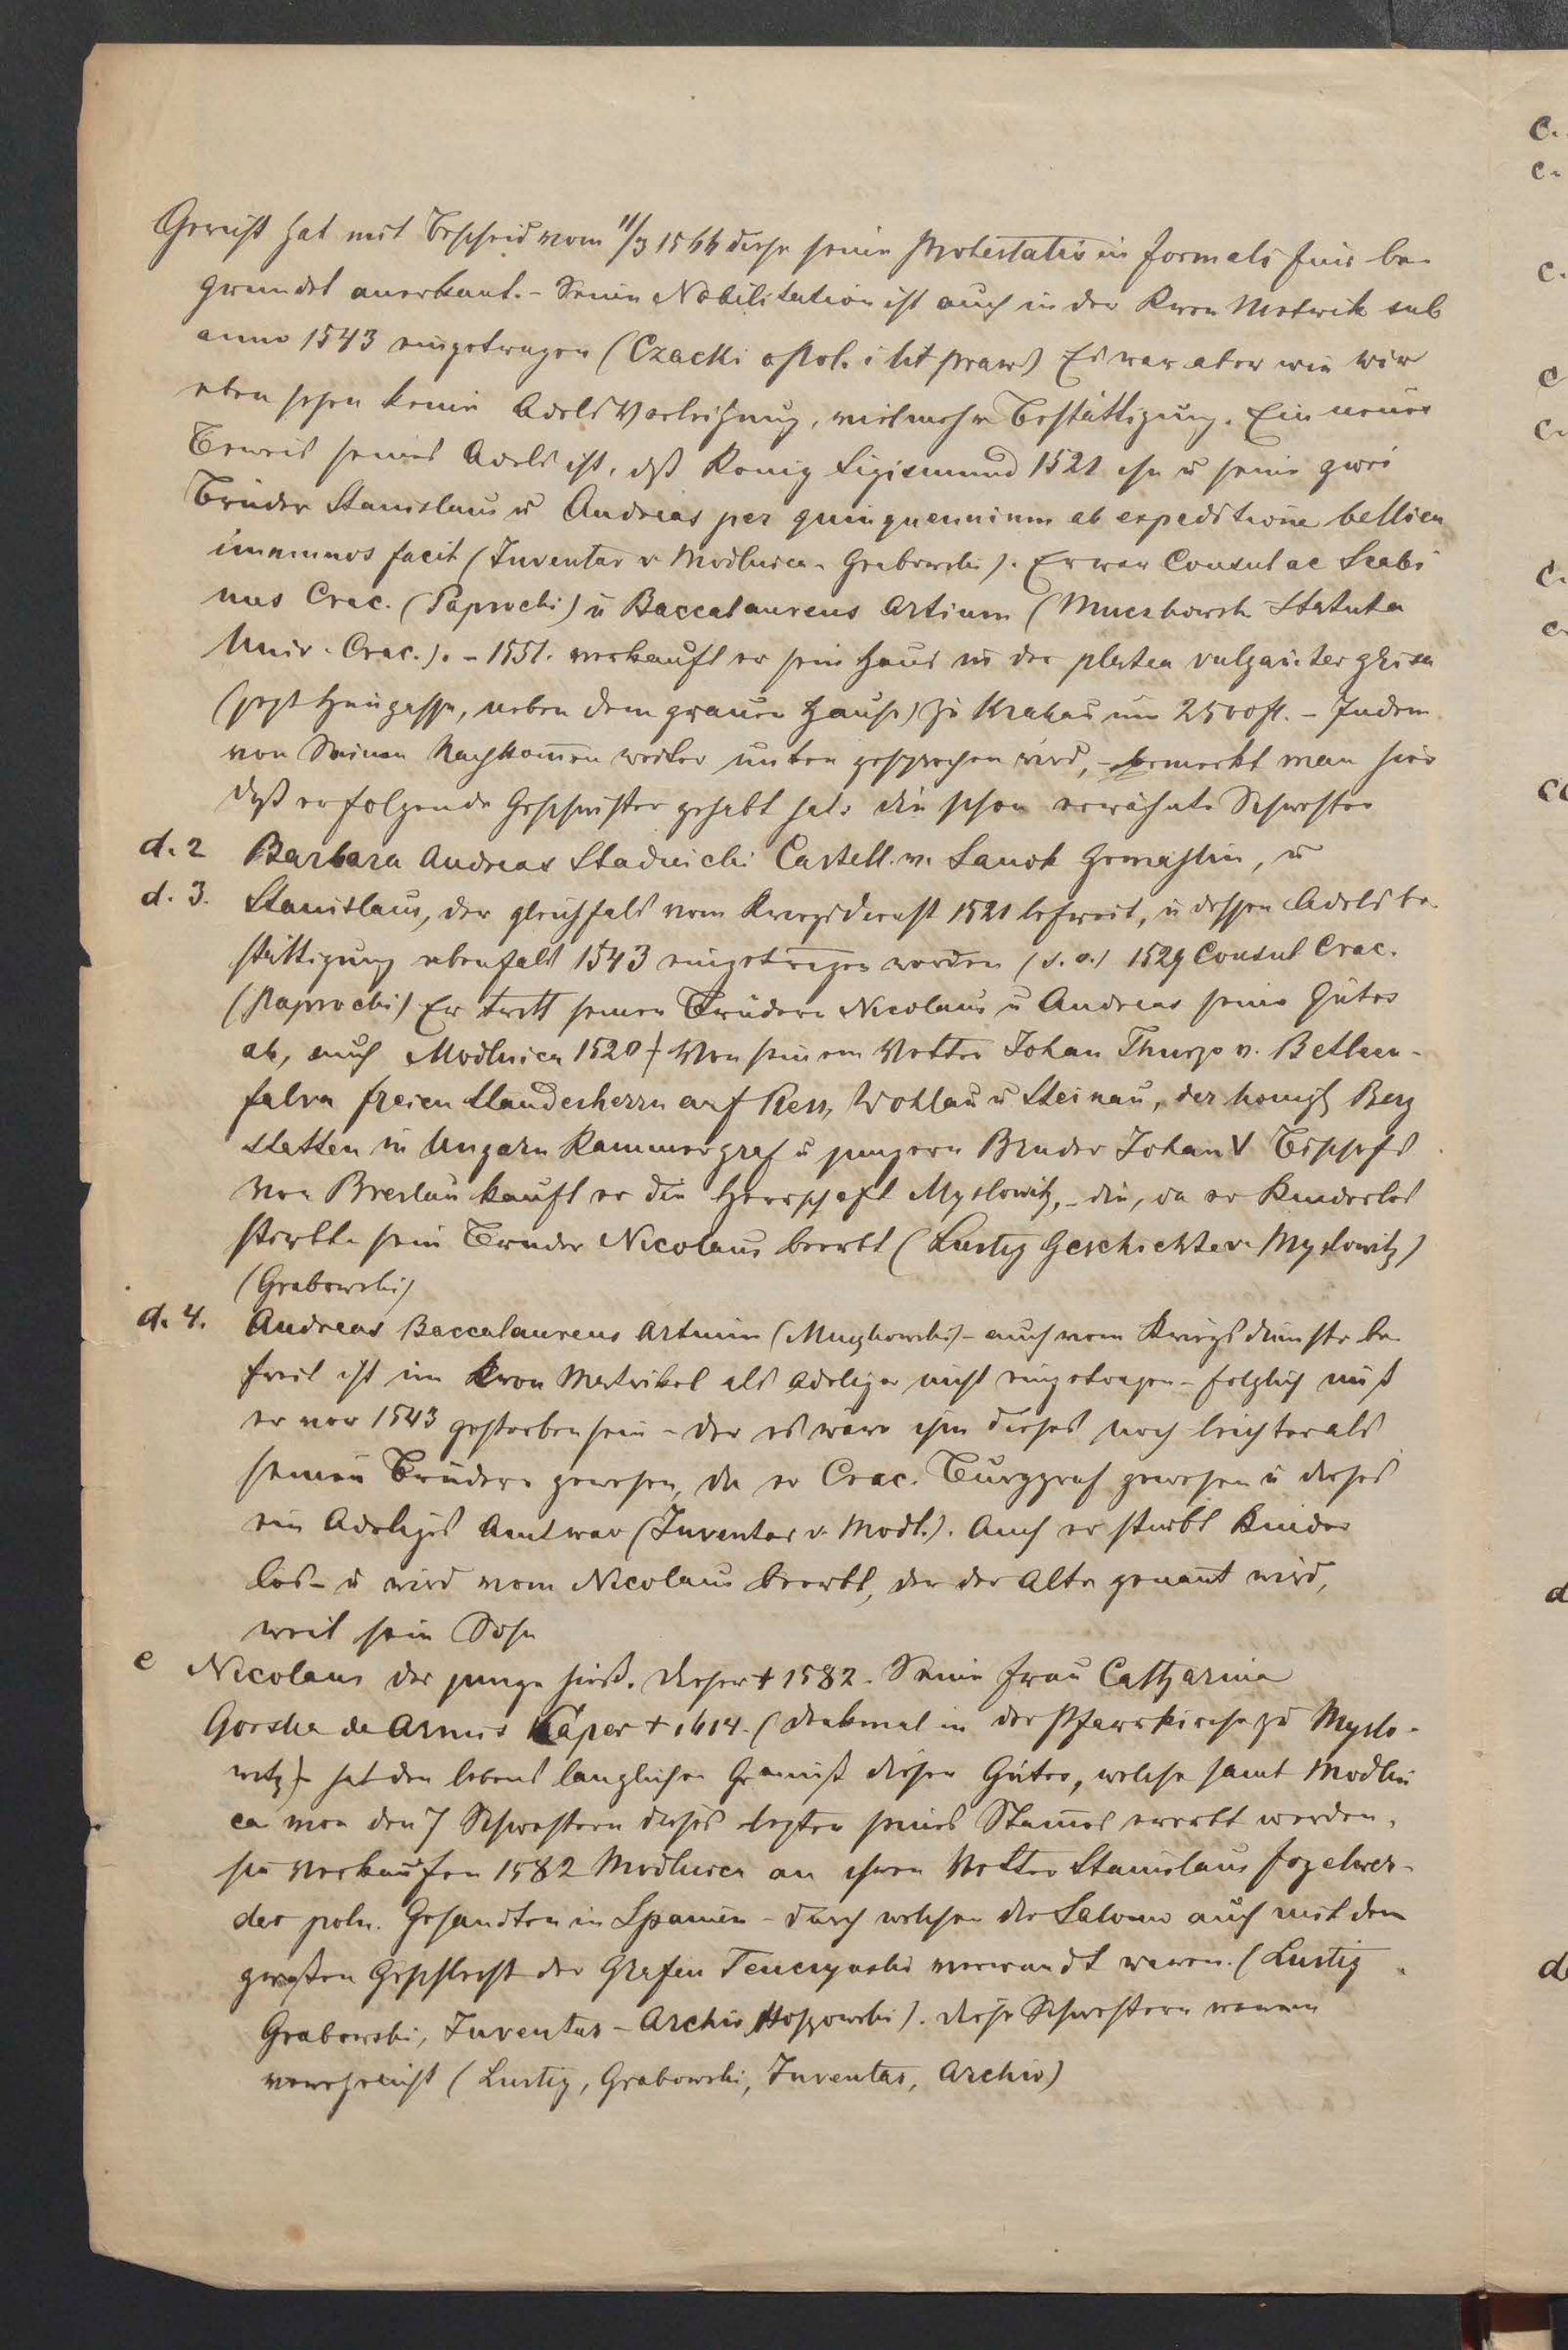 Gericht hat mit Bescheid vom 11/3 1566 diese seine Protestatio in formalis fuis be-
gründet anerkant. - Seine Nobilitation ist auch in der Kron Metrik sub
anno 1543 eingetragen (Czacki o Pol. i lit praw) Es war aber wie wir
eben sehen keine Adels Verleihung, vielmehr Bestättigung. Ein neuer
Beweis seines Adels ist, dß König Sigismund 1521 ihn u seine zwei
Brüder Stanislaus u Andreas per quinquennium ab expeditione bellica
immunos facit (Inventar v Modlnica - Grabowski). Er war Consul ac Scabi
nus Crac. (Paprocki) u Baccalaureus Artium (Muczkowsk Statuta
Univ. Crac.). - 1551. verkauft er sein Haus in der platea vulgariter
(jezt Heugasse, neben dem grauen Hause) zu Krakau um 2500 fl. - Indem
von Seinen Nachkom̄en weiter unten gesprochen wird, - bemerkt man hier
daß er folgende Geschwister gehabt hat: die schon erwähnte Schwester
d. 2 Barbara Andreas Stadnicki Castell. v. Sanok Gemahlin, u
d. 3. Stanislaus, der gleichfals vom Kriegsdienst 1521 befreit, u dessen Adels be-
stättigung ebenfals 1543 eingetragen worden (s. o.) 1529 Consul Crac.
(Paprocki) Er tritt seinen Brüdern Nicolaus u Andreas seine Güter
ab, auch Modlnica 1520 Von seinem Vetter Johan Thurzo v. Bethlen-
falva freien Standesherrn auf Pless, Wohlau u Steinau, der königl Berg
stetten in Ungarn Kammergraf u jungern Bruder Johan V Bischofs
von Breslau kauft er die Herrschaft Myslowitz, - die, da er Kinderlos
stirbt - sein Bruder Nicolaus beerbt (Lustig Geschichte v. Myslowitz)
(Grabowski)
d. 4. Andreas Baccalaureus Artium (Muczkowski) - auch vom Kriegsdienste be-
freit ist im Kron Metrikel als Adeliger nicht eingetragen - folglich muß
er vor 1543 gestorben sein - den es wäre ihm dieses noch leichter als
seinen Brüdern gewesen, da er Crac. Burggraf gewesen u dieses
ein Adeliges Amt war (Inventar v. Modl.). Auch er stirbt Kinder
los - u wird vom Nicolaus beerbt, der der Alte genan̄t wird,
weil sein Sohn
e Nicolaus der junge hieß. dieser + 1582. Seine Frau Catharina
Gorska de Armis + 1614. (Denkmal in der Pfarrkirche zu Myslo-
witz) - hat den lebens langlichen Genuß dieser Güter, welche samt Modlni
ca von den 7 Schwestern dieses lezten seines Stam̄es ererbt werden.
sie Verkaufen 1582 Modlnica an ihren Vetter Stanislaus Fogelwer-
der poln. Gesandten in Spanien - durch welchen die Salomo auch mit dem
großen Geschlecht der Grafen Tenczynski verwandt waren. (Lustig
Grabowski, Inventar - Archiv Hoszowski). diese Schwestern waren
verehelicht (Lustig, Grabowski, Inventar, Archiv)